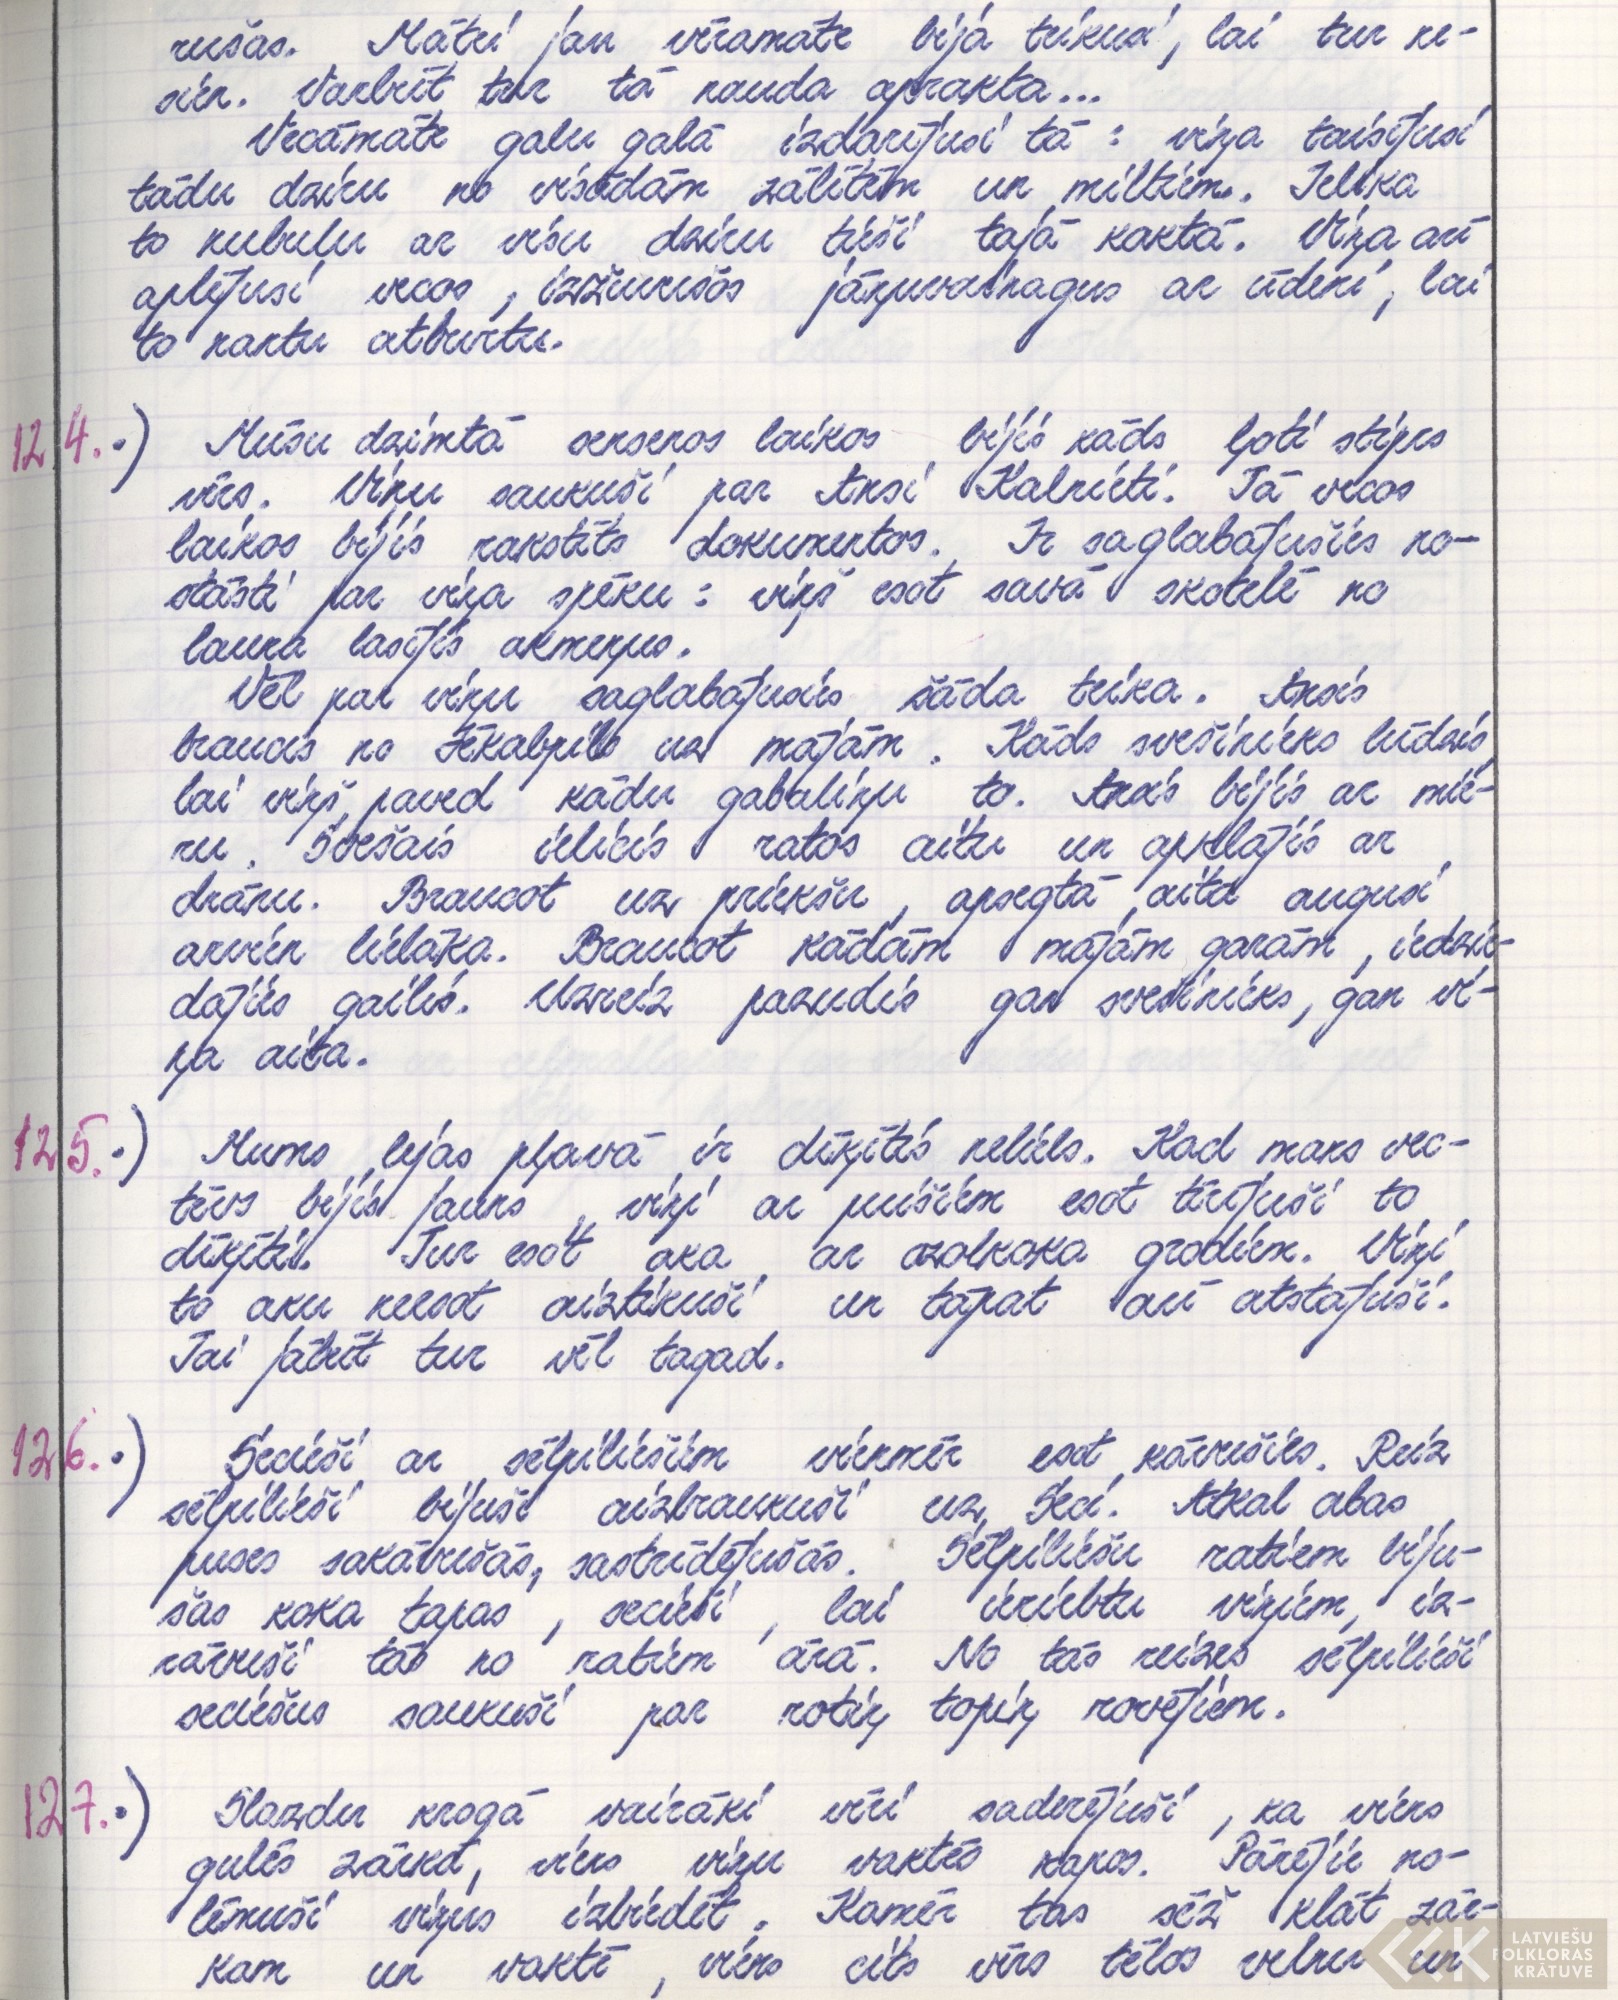 rušas. Mātei jau vīramāte bija teikusi, lai tur ne-
sien. Varbūt tur tā nauda aprakta...
Vecāmāte galu galā izdarījusi tā: viņa taisījusi
tādu dziru no visādām zālītēm un miltiem. Ielika
to kubulu ar visu dziru tieši tajā kaktā. Viņa arī
aplējusi vecos, izžuvušos jāņuvaiņagus ar ūdeni, lai
to kaktu atburtu.
124.) Mūsu dzimtā sensenos laikos bijis kāds ļoti stiprs
vīrs. Viņu saukuši par Ansi Kalnieti. Tā vecos
laikos bijis rakstīts dokumentos. Ir saglabājušies no-
stāsti par viņa spēku: viņš esot savā skotelē no
lauka lasījis akmeņus.
Vēl par viņu saglabājusies šāda teika. Ansis
braucis no Jēkabpils uz mājām. Kāds svešinieks lūdzis,
lai viņš paved kādu gabaliņu to. Ansis bijis ar mie-
ru. Svešais ielicis ratos aitu un apklājis ar
drānu. Braucot uz priekšu, apsegtā aita augusi
arvien lielāka. Braucot kādām mājām garām, iedzie-
dājies gailis. Uzreiz pazudis gan svešinieks, gan vi-
ņa aita.
125.) Mums lejas pļavā ir dīķītis neliels. Kad mans vec-
tēvs bijis jauns, viņi ar puišiem esot tīrījuši to
dīķīti. Tur esot aka ar ozolkoka grodiem. Viņi
to aku neesot aiztikuši un tāpat arī atstājuši.
Tai jābūt tur vēl tagad.
126.) Secieši ar sēlpiliešiem vienmēr esot kāvušies. Reiz
sēlpilieši bijuši aizbraukuši uz Seci. Atkal abas
puses sakāvušās, sastrīdējušās. Sēlpiliešu ratiem biju-
šas koka tapas, secieši, lai ieriebtu viņiem, iz-
rāvuši tās no ratiem ārā. No tās reizes sēlpilieši
seciešus saukuši par rotiņ topiņ rovējiem.
127.) Slazdu krogā vairāki vīri saderējuši, ka viens
gulēs zārkā, viens viņu vaktēs kapos. Pārējie no-
lēmuši viņus izbiedēt. Kamēr tas sēž klāt zār-
kam un vaktē, viens cits vīrs tēlos velnu un
LATVIEŠU
FOLKLORAS
KRĀTUVE